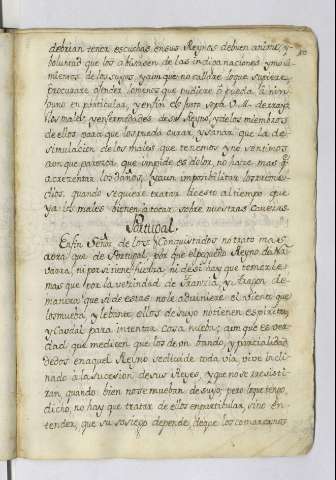 debrian tener escuchas en sus Reynos de bien animo, y
voluntad que los abisasen de las indicaciones, y mo-
uimientos de los suyos, y aunque no callare lo que supiere,
procurare ofender lo menos que pudiere, ô pueda, â nin-
guno en particular, y en fin es justo sepa V.M. de rrayz
los males y enfermedades de su Reyno, y de los miembros
de ellos, para que los pueda curar, y sanar, que la de-
simulacion de los males que tenemos y no sentimos
aun que parezca, que impide el dolor, no hacie mas q̃
acrezentar los daños, y aun imposibilitar los rreme-
dios, quando se quiere tratar de esto al tiempo que
ya los males bienen à tocar sobre nuestras caueças.
Portugal.
En fin Señor de los Conquistados no trato mas
aora que de Portugal, por que el pequeño Reyno de Na-
barra, ni por si tiene fuerza, ni de si hay que temer le
mas que por la vezindad de Franzia, y Aragon de
manera que si de estas no le abiniere el viento que
los mueba, y lebante, ellos de suyo no tienen espiritu
y Caudal para intentar Cosa nueba; aun que es ver-
dad que mediten que los de un bando, y parcialidad
de dos en aquel Reyno se diuide toda via viue incli-
nado à la sucesion de sus Reyes, y que no se rresisti-
rian, quando bien no se mueban de suyo; pero lo que tengo
dicho, no hay que tratar de ellos en particular, sino en-
tender, que su sosiego depende de que los comarcanos